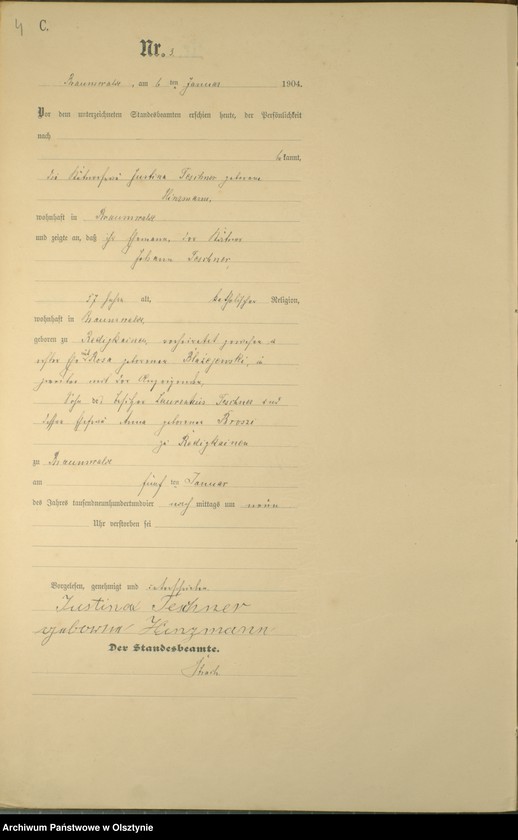 4 C.
Nr. 3
Braunswalde, am 6 ten Januar 1904.
Vor dem unterzeichneten Standesbeamten erschien heute, der Persönlichkeit
nach
bekannt,
die Kätnerfrau Justina Teschner geborene
Hinzmann,
wohnhaft in Braunswalde
und zeigte an, daß ihr Ehemann, der Kätner
Johann Teschner,
57 Jahre alt, katholischer Religion,
wohnhaft in Braunswalde,
geboren zu Redigkainen, verheiratet gewesen in
erster Ehe mit Rosa geborenen Blazejewski, in
zweiter mit der Anzeigenden,
Sohn des Besitzers Laurentius Teschner und
dessen Ehefrau Anna geborenen
zu Redigkainen
zu Braunswalde
am fünf ten Januar
des Jahres tausendneunhundertundvier nachmittags um neun
Uhr verstorben sei
Vorgelesen, genehmigt und unterschrieben
Justina Teschner
geborene Hinzmann
Der Standesbeamte.
Archiwum Państwowe w Olsztynie